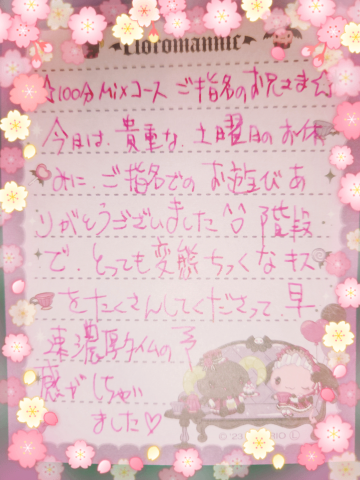 Lloromannic
☆100分Mixコース ご指名のお兄さま☆
今日は、貴重な、土曜日のお休
みに、ご指名でのお遊びあ
りがとうございました^^ 階段
で、とっても変態ちっくなキス
をたくさんしてくださって、早
速濃厚タイムの予
感がしちゃい
ました♡
©'23